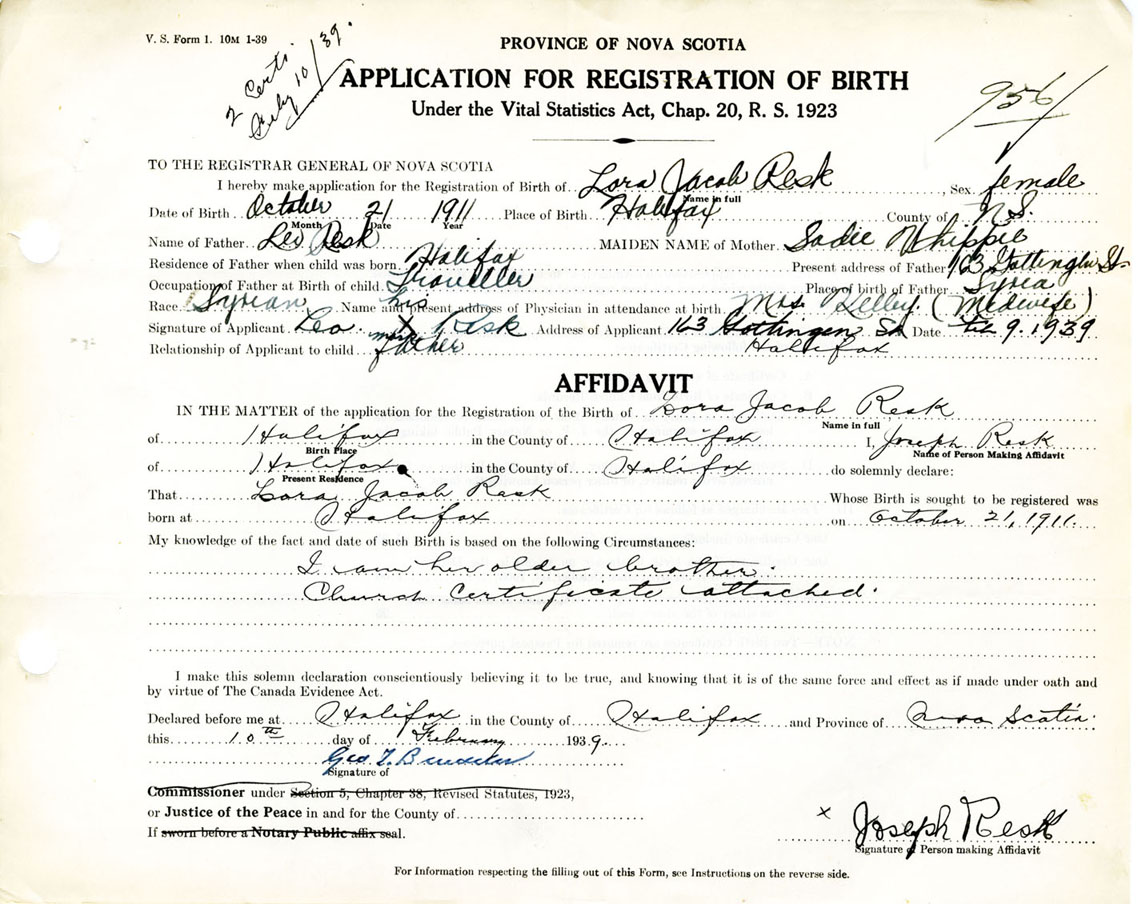 V. S. Form 1. 10M 1-39
2 Certi.
July 10/39.
PROVINCE OF NOVA SCOTIA
APPLICATION FOR REGISTRATION OF BIRTH
Under the Vital Statistics Act, Chap. 20, R. S. 1923
956
TO THE REGISTRAR GENERAL OF NOVA SCOTIA
I hereby make application for the Registration of Birth of Lora Jacob Resk, Sex female
Name in full
Date of Birth October 21 1911 Place of Birth Halifax County of N.S.
Month Date Year
Name of Father Leo Resk MAIDEN NAME of Mother Sadie Whippie
Residence of Father when child was born Halifax Present address of Father 163 Gottingen St.
Occupation of Father at Birth of child Traveller Place of birth of Father Syria
Race Syrian Name and present address of Physician in attendance at birth Mrs Kelley (Midwife)
his
Signature of Applicant Leo X Resk Address of Applicant 163 Gottingen St Date Feb 9. 1939
mark
Relationship of Applicant to child father Halifax
AFFIDAVIT
IN THE MATTER of the application for the Registration of the Birth of Lora Jacob Resk
Name in full
of Halifax in the County of Halifax I, Joseph Resk
Birth Place Name of Person Making Affidavit
of Halifax in the County of Halifax do solemnly declare:
Present Residence
That Lora Jacob Resk Whose Birth is sought to be registered was
born at Halifax on October 21, 1911.
My knowledge of the fact and date of such Birth is based on the following Circumstances:
I am her older brother.
Church Certificate attached.
I make this solemn declaration conscientiously believing it to be true, and knowing that it is of the same force and effect as if made under oath and
by virtue of The Canada Evidence Act.
Declared before me at Halifax in the County of Halifax and Province of Nova Scotia.
this 10th day of February 1939.
Geo T.
Signature of
Commissioner under Section 5, Chapter 38, Revised Statutes, 1923,
or Justice of the Peace in and for the County of
If sworn before a Notary Public affix seal.
x Joseph Resk
Signature of Person making Affidavit
For Information respecting the filling out of this Form, see Instructions on the reverse side.